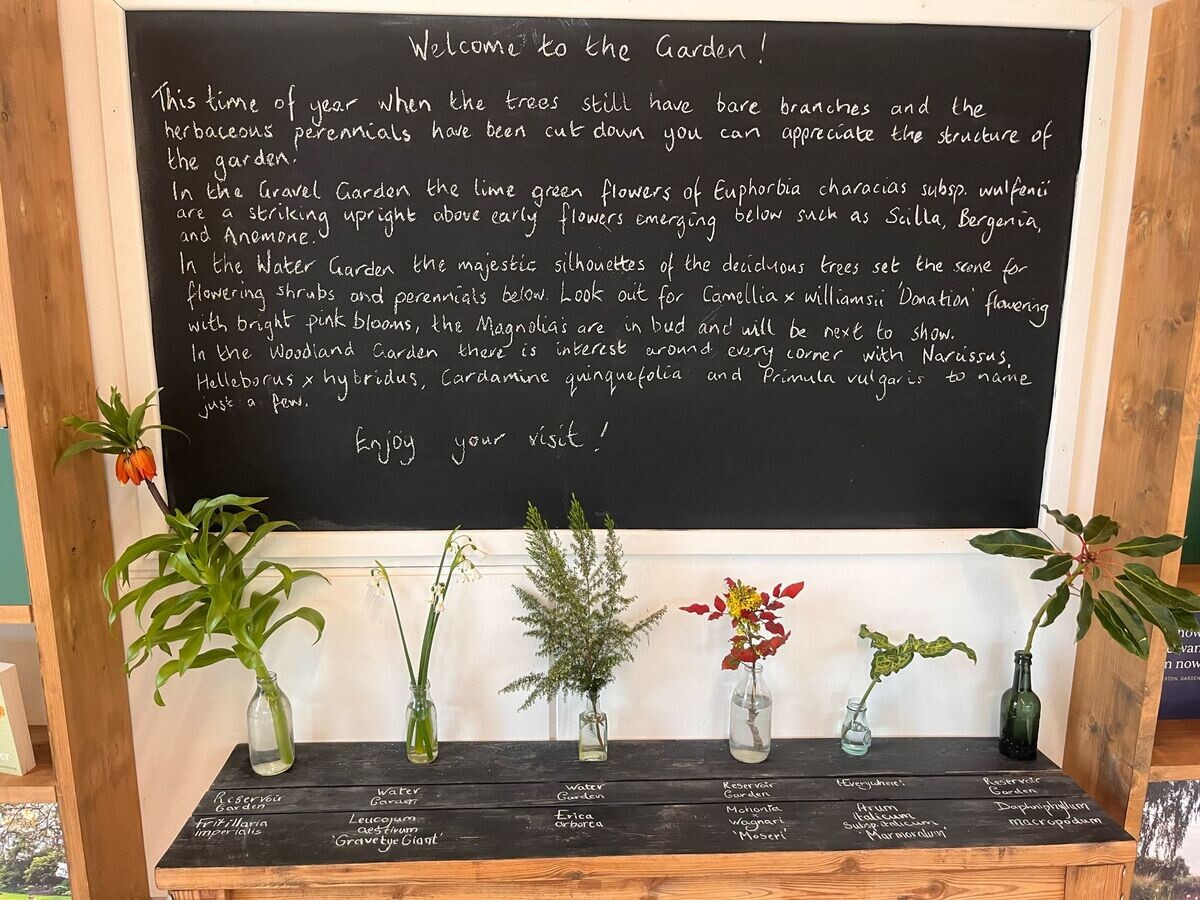 Welcome to the Garden!
This time of year when the trees still have bare branches and the
herbaceous perennials have been cut down you can appreciate the structure of
the garden.
In the Gravel Garden the lime green flowers of Euphorbia characias subsp. wulfenii
are a striking upright above early flowers emerging below such as Scilla, Bergenia,
and Anemone.
In the Water Garden the majestic silhouettes of the deciduous trees set the scene for
flowering shrubs and perennials below. Look out for Camellia x williamsii 'Donation' flowering
with bright pink blooms, the Magnolia's are in bud and will be next to show.
In the Woodland Garden there is interest around every corner with Narcissus,
Helleborus x hybridus, Cardamine quinquefolia and Primula vulgaris to name
just a few.
Enjoy your visit!
Reservoir
Garden
Fritillaria
imperialis
Water
Garden
Leucojum
aestivum
'Gravetye Giant'
Water
Garden
Erica
arborea
Reservoir
Garden
Mahonia
wagnari
'Moseri'
!Everywhere!
Arum
italicum
subsp. italicum
'Marmoratum'
Reservoir
Garden
Daphniphyllum
macropodum